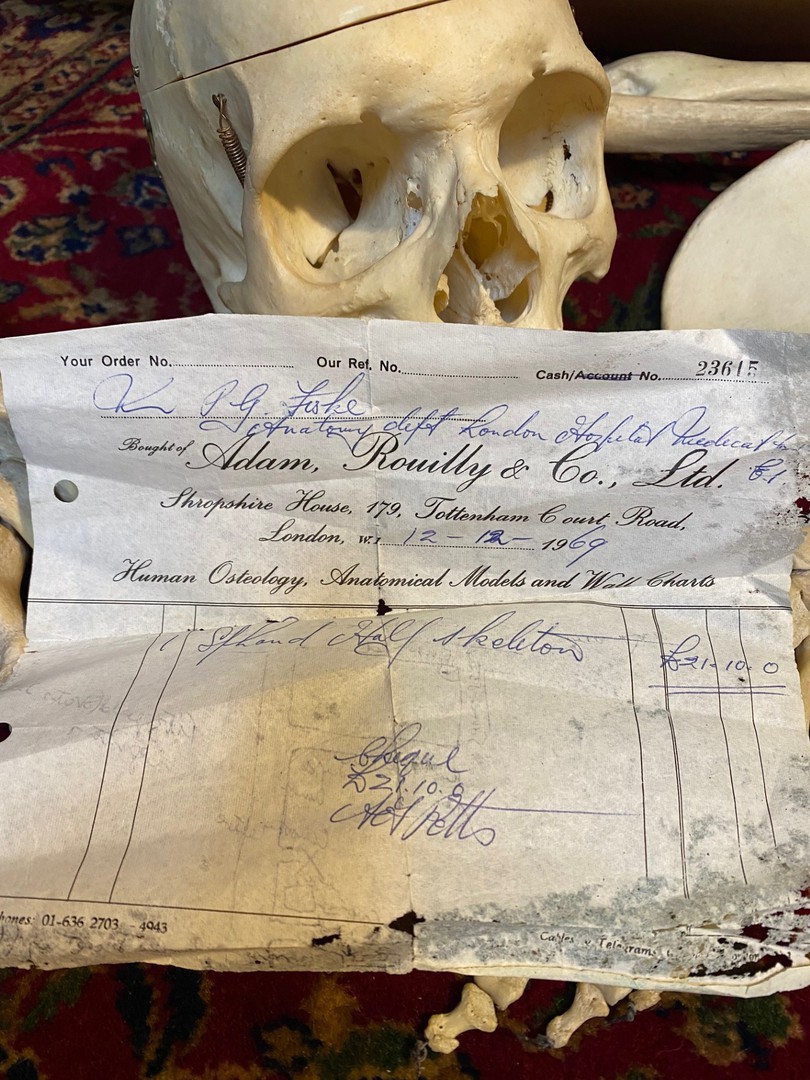 Your Order No. Our Ref. No. Cash/Account No. 23615
P G. Fiske
Anatomy dept London Hospital Medical
Bought of Adam, Rouilly & Co., Ltd. E.1
Shropshire House, 179, Tottenham Court Road,
London, W.1 12 - 12 - 1969
Human Osteology, Anatomical Models and Wall Charts
1 S/hand Half skeleton £21-10.0
Cheque
£21.10.0
01-636 2703 - 4943
Cables & Telegrams